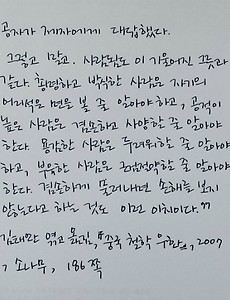 공자가 제자에게 대답했다.
그렇고 말고. 사람됨도 이 기울어진 그릇과
같다. 총명하고 박식한 사람은 자기의
어리석은 면을 볼 줄 알아야 하고, 공적이
높은 사람은 겸손하고 사양할 줄 알아야
한다. 용감한 사람은 두려워할 줄 알아야
하고, 부유한 사람은 근검절약할 줄 알아야
한다. 겸손하게 물러나면 손해를 보지
않는다고 하는 것도 이런 이치이다."
김태관 엮고 옮김, 『중국 철학 우화』, 2007
, 소나무, 186쪽